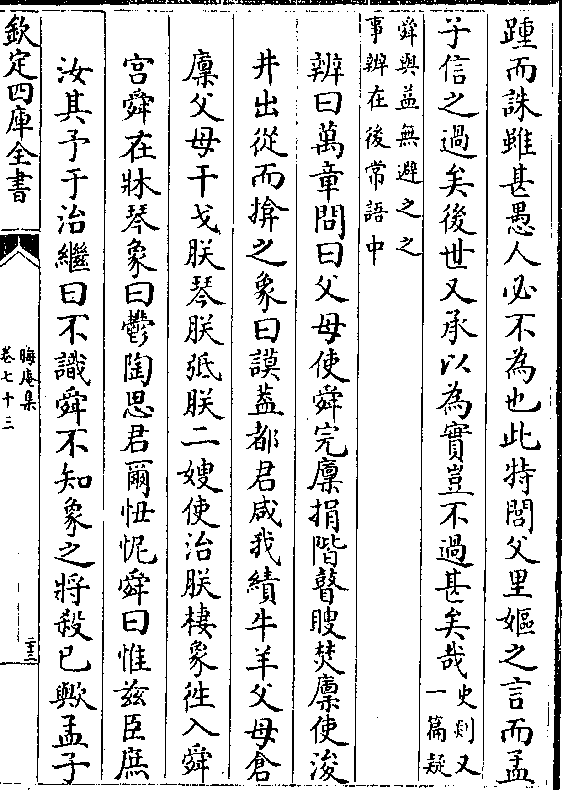 踵而誅雖甚愚人必不為也此特閭父里嫗之言而孟
子信之過矣後世又承以為實豈不過甚矣哉史剡又
一篇疑
舜與益無避之之
事辨在後常語中
辨曰萬章問曰父母使舜完廩捐階瞽瞍焚廩使浚
井出從而揜之象曰謨葢都君咸我績牛羊父母倉
廩父母干戈朕琴朕弤朕二嫂使治朕棲象徃入舜
宫舜在牀琴象曰鬱陶思君爾忸怩舜曰惟兹臣庶
汝其予于治繼曰不識舜不知象之將殺已歟孟子
欽定四庫全書
晦庵集
卷七十三
二三